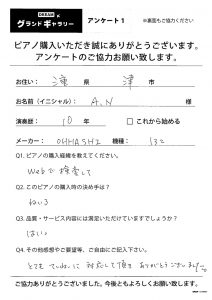 グランドギャラリー
アンケート1
※裏面もご協力ください
ピアノ購入いただき誠にありがとうございます。
アンケートのご協力お願い致します。
お住い: 県 津 市
お名前(イニシャル): A.N 様
演奏歴: 10 年 □これから始める
メーカー: OHHASHI 機種: 132
Q1. ピアノの購入経緯を教えてください。
Webで検索して
Q2. このピアノの購入時の決め手は?
ねいろ
Q3. 品質・サービス内容には満足いただけていますでしょうか?
はい
Q4. その他感想やご要望等、ご自由にご記入下さい。
とてもていねいに対応して頂きありがとうございました。
ご協力ありがとうございました。今後ともよろしくお願い致します。